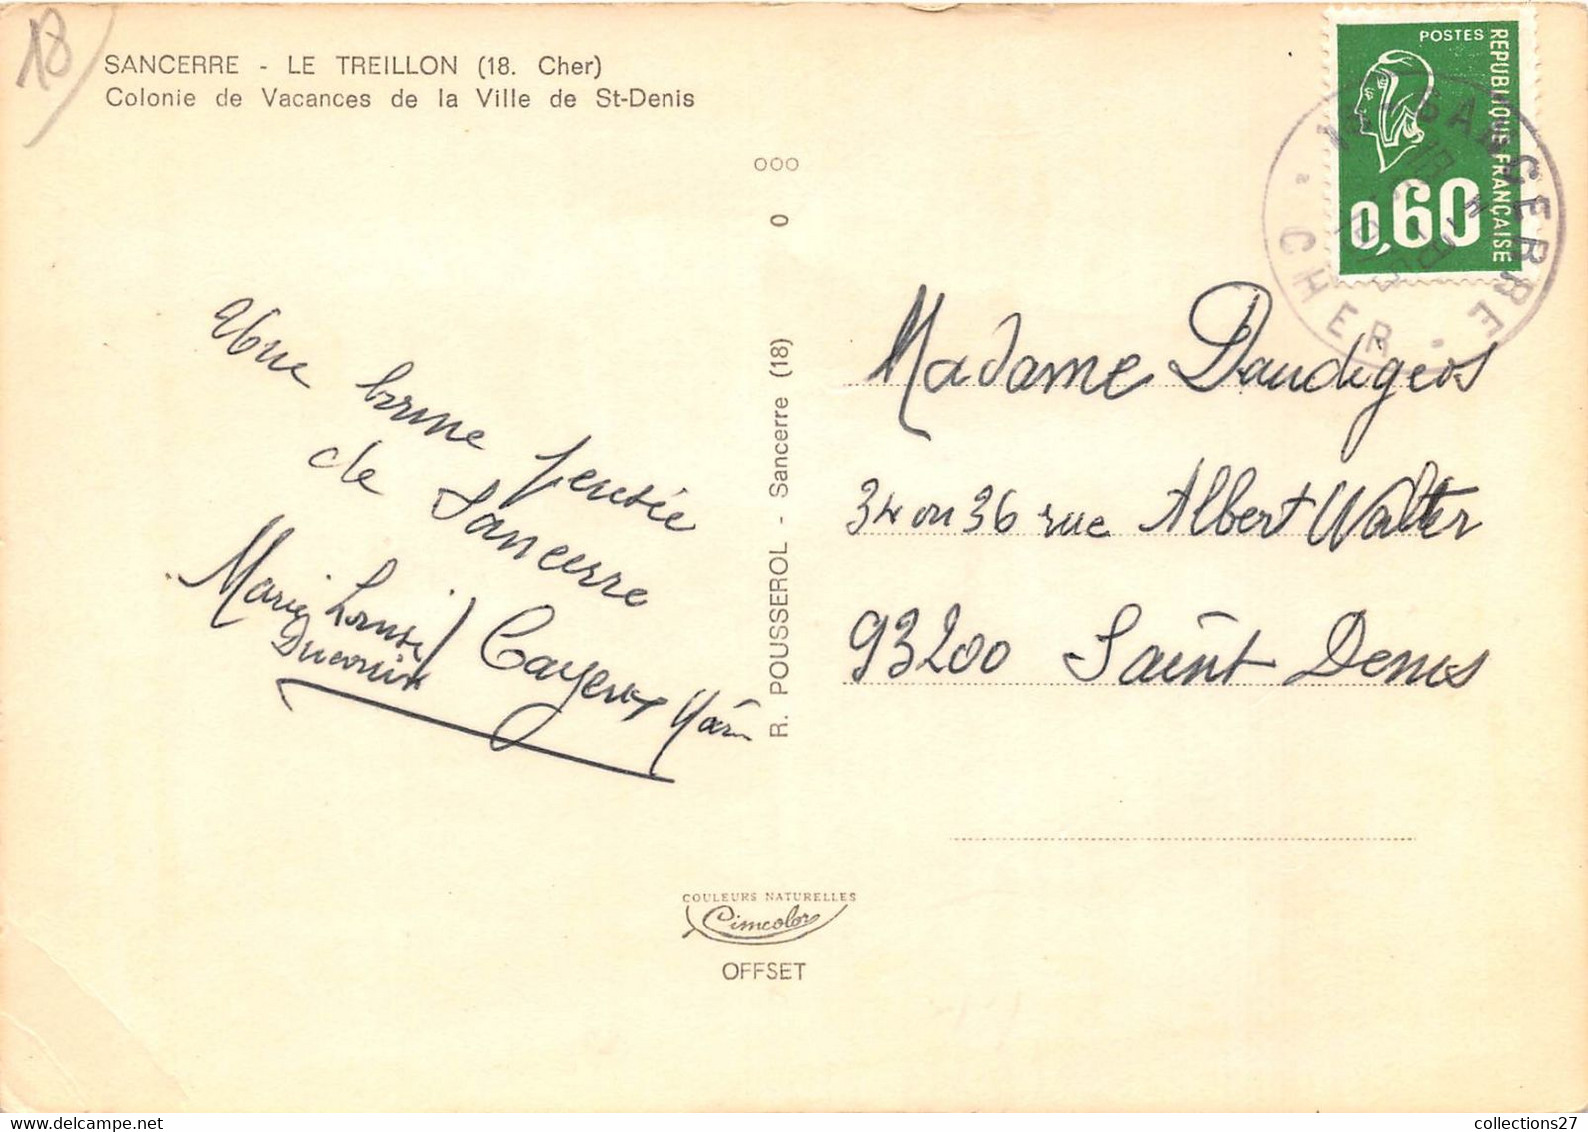 18
SANCERRE - LE TREILLON (18. Cher)
Colonie de Vacances de la Ville de St-Denis
POSTES
REPUBLIQUE FRANÇAISE
0,60
18 SANCERRE
CHER
Une bonne pensée
de Sancerre
Marie Louise
Cayeros
000
R. POUSSEROL - Sancerre (18) 0
Madame Daudigeos
34 ou 36 rue Albert Walter
93200 Saint Denis
COULEURS NATURELLES
Cimcolor
OFFSET
collections27